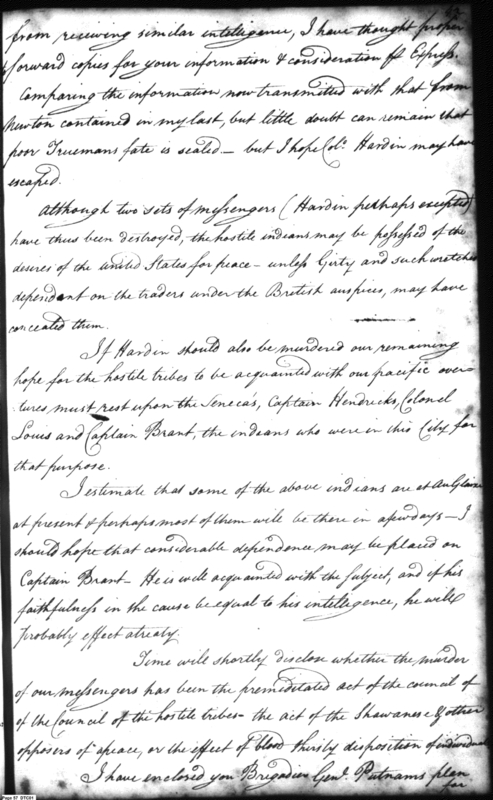 from receiving similar intelligence, I have thought proper
to forward copies for your information & consideration pr Express.
Comparing the information now transmitted with that from
Newton contained in my last, but little doubt can remain that
poor Truemans fate is sealed — but I hope Colo. Hardin may have
escaped.
Although two sets of messengers (Hardin perhaps excepted)
have thus been destroyed, the hostile indians may be possessed of the
desires of the United States for peace — unless Girty and such wretches
dependent on the traders under the British auspices, may have
concealed them.
If Hardin should also be murdered our remaining
hope for the hostile tribes to be acquainted with our pacific over-
tures must rest upon the Seneca's, Captain Hendricks, Colonel
Louis and Captain Brant, the indians who were in this City for
that purpose.
I estimate that some of the above indians are at Au Glaize
at present & perhaps most of them will be there in a few days — I
should hope that considerable dependence may be placed on
Captain Brant — He is well acquainted with the subject, and if his
faithfulness in the cause be equal to his intelligence, he will
probably effect a treaty.
Time will shortly disclose whether the murder
of our messengers has been the premeditated act of the council of
of the Council of the hostile tribes — the act of the Shawanese & other
opposers of a peace, or the effect of blood thirsty disposition of individuals
I have enclosed you Brigadier Genl. Putnams plan
for
Page 57 DTC01